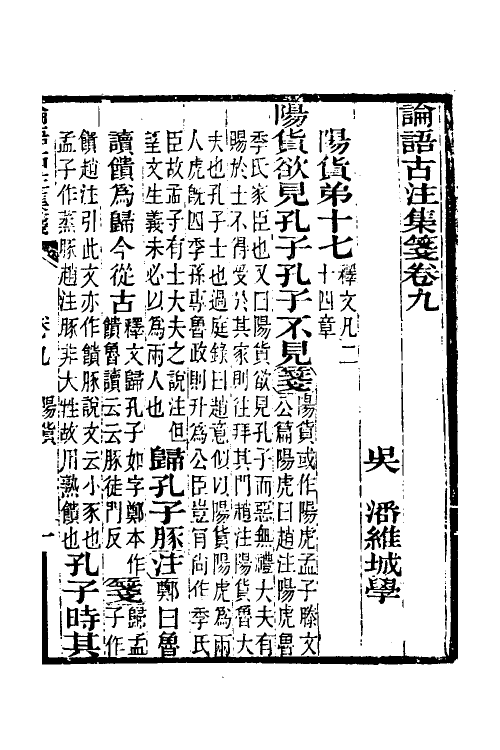 論語古注集箋卷九
吳　潘維城學
陽貨弟十七
釋文凡二
十四章
陽貨欲見孔子孔子不見箋
陽貨或作陽虎孟子滕文
公篇陽虎曰趙注陽虎魯
季氏家臣也又曰陽貨欲見孔子而惡無禮大夫有
賜於士不得受於其家則往拜其門趙注陽貨魯大
夫也孔子士也過庭錄曰趙意似以陽貨陽虎為兩
人虎既囚季孫專魯政則升為公臣豈肯尚作季氏
臣故孟子有士大夫之說注但
望文生義未必以為兩人也
歸孔子豚注鄭曰魯
讀饋為歸今從古
釋文歸孔子如字鄭本作
饋魯讀云云豚徒門反
箋
歸孟
子作
饋趙注引此文亦作饋豚說文云小豕也
孟子作蒸豚趙注豚非大牲故用熟饋也
孔子時其
論語古注集箋　卷九　陽貨　一